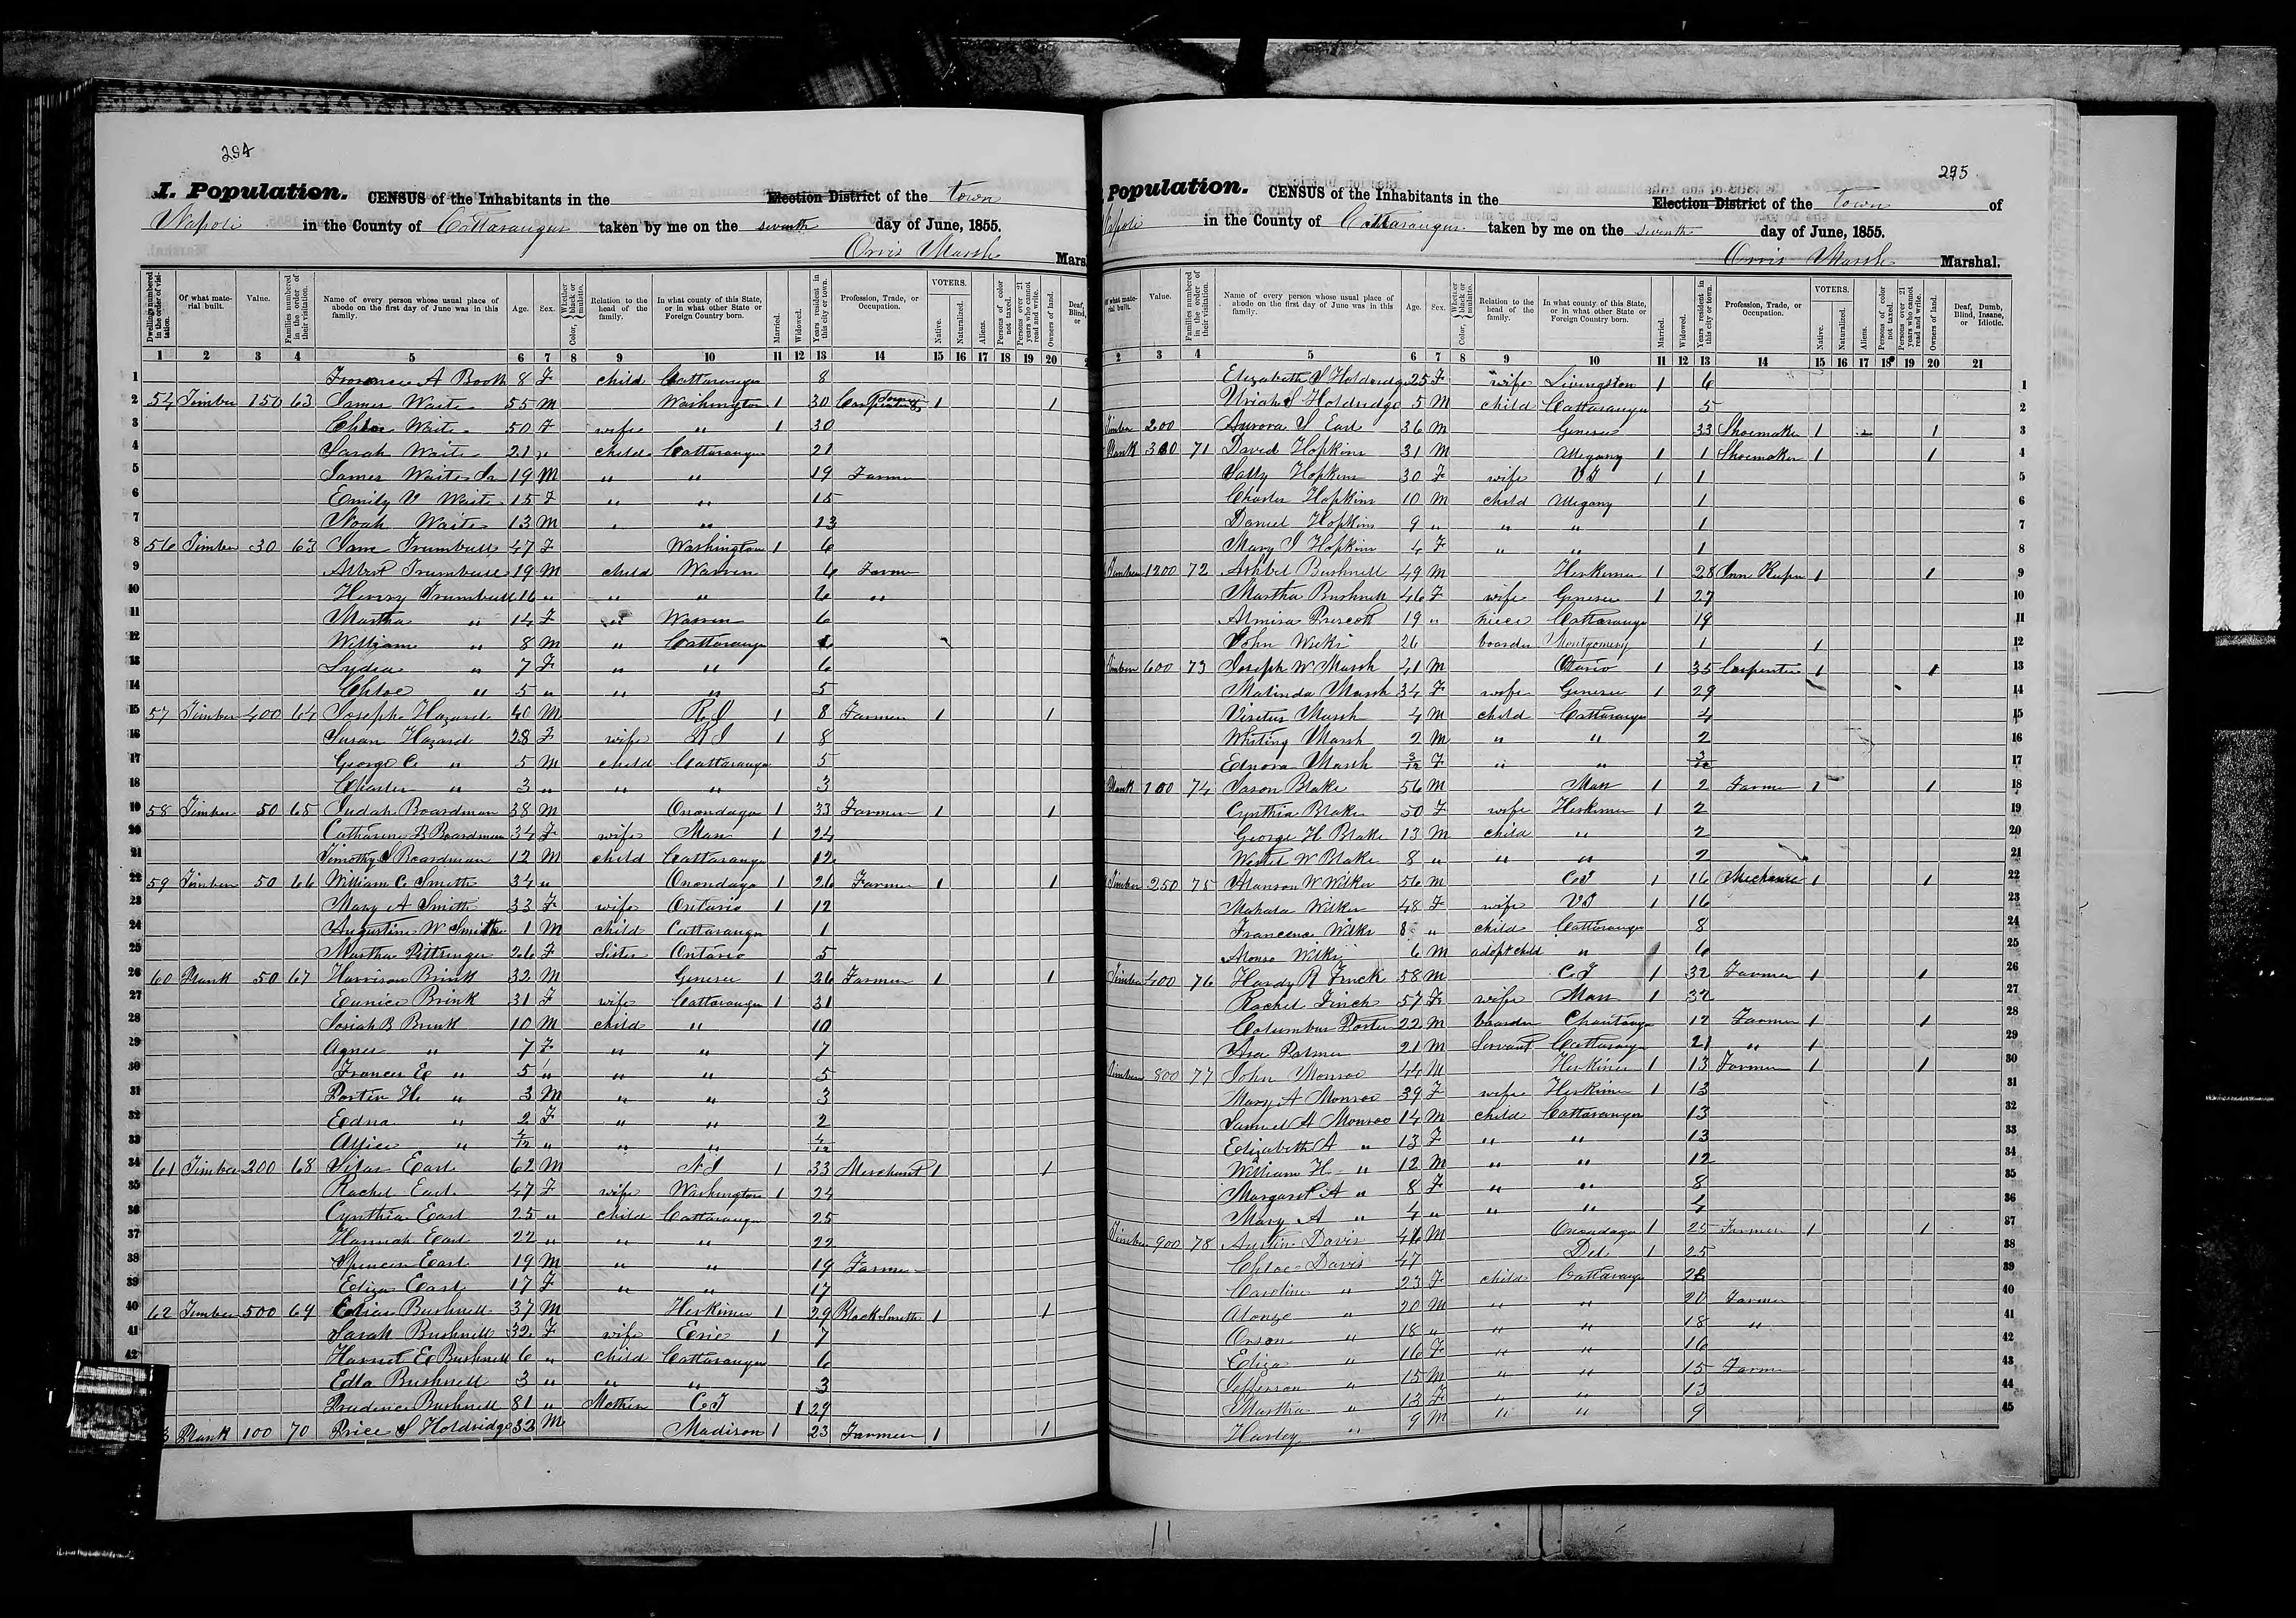 294
I. Population. CENSUS of the Inhabitants in the Election District of the town
Napoli in the County of Cattaraugus taken by me on the seventh day of June, 1855.
Orvis Marsh Mars
Dwellings numbered in the order of visitation. Of what material built. Value. Families numbered in the order of their visitation. Name of every person whose usual place of abode on the first day of June was in this family. Age. Sex. Color, Whether black or mulatto. Relation to the head of the family. In what county of this State, or in what other State or Foreign Country born. Married. Widowed. Years resident in this city or town. Profession, Trade, or Occupation. VOTERS. Native. Naturalized. Aliens. Persons of color not taxed. Persons over 21 years who cannot read and write. Owners of land. Deaf, Blind, or
1 2 3 4 5 6 7 8 9 10 11 12 13 14 15 16 17 18 19 20
1 A Booth 8 F child Cattaraugus 8
2 54 Timber 150 63 James Waite 55 M Washington 1 30 1 1
3 Chloe Waite 50 F wife " 1 30
4 Sarah Waite 21 " child Cattaraugus 21
5 James Waite Jr 19 M " " 19 Farmer
6 Emily V Waite 15 F " " 15
7 Noah Waite 13 M " " 13
8 56 Timber 30 63 Jane Trumbull 47 F Washington 1 6
9 Albert Trumbull 19 M child Warren 6 Farmer
10 Henry Trumbull 16 " " " 6 "
11 Martha " 14 F " Warren 6
12 William " 8 M " Cattaraugus 6
13 Lydia " 7 F " " 6
14 Chloe " 5 " " " 5
15 57 Timber 400 64 Joseph Hazard 40 M R I 1 8 Farmer 1 1
16 Susan Hazard 28 F wife R I 1 8
17 George C " 5 M child Cattaraugus 5
18 Charles " 3 " " " 3
19 58 Timber 50 65 Judah Boardman 38 M Onondaga 1 33 Farmer 1 1
20 Catharine B Boardman 34 F wife Mass 1 24
21 Timothy J Boardman 12 M child Cattaraugus 12
22 59 Timber 50 66 William C Smith 34 " Onondaga 1 26 Farmer 1 1
23 Mary A Smith 33 F wife Ontario 1 12
24 Augustine W Smith 1 M child Cattaraugus 1
25 Martha Pittsinger 26 F Sister Ontario 5
26 60 Plank 50 67 Harrison Brink 32 M Genesee 1 26 Farmer 1 1
27 Eunice Brink 31 F wife Cattaraugus 1 31
28 Josiah B Brink 10 M child " 10
29 Agnes " 7 F " " 7
30 Frances E " 5 " " " 5
31 Porter H. " 3 M " " 3
32 Edna " 2 F " " 2
33 " 4/12 " " " 4/12
34 61 Timber 200 68 Silas Earl 62 M N J 1 33 Merchant 1 1
35 Rachel Earl 47 F wife Washington 1 24
36 Cynthia Earl 25 " child Cattaraugus 25
37 Hannah Earl 22 " " " 22
38 Spencer Earl 19 M " " 19 Farmer
39 Eliza Earl 17 F " " 17
40 62 Timber 500 69 Elias Bushnell 37 M Herkimer 1 29 Black Smith 1 1
41 Sarah Bushnell 32 F wife Erie 1 7
42 Harriet E Bushnell 6 " child Cattaraugus 6
Edla Bushnell 3 " " " 3
Prudence Bushnell 81 " Mother C T 1 29
3 Plank 100 70 Price S Holdridge 32 M Madison 1 23 Farmer 1 1
295
Population. CENSUS of the Inhabitants in the Election District of the town of
Napoli in the County of Cattaraugus taken by me on the seventh day of June, 1855.
Orvis Marsh Marshal.
Of what material built. Value. Families numbered in the order of their visitation. Name of every person whose usual place of abode on the first day of June was in this family. Age. Sex. Color, Whether black or mulatto. Relation to the head of the family. In what county of this State, or in what other State or Foreign Country born. Married. Widowed. Years resident in this city or town. Profession, Trade, or Occupation. VOTERS. Native. Naturalized. Aliens. Persons of color not taxed. Persons over 21 years who cannot read and write. Owners of land. Deaf, Dumb, Blind, Insane, or Idiotic.
2 3 4 5 6 7 8 9 10 11 12 13 14 15 16 17 18 19 20 21
Elizabeth S Holdridge 25 F wife Livingston 1 6 1
Uriah S Holdridge 5 M child Cattaraugus 5 2
Timber 200 Aurora S Earl 36 M Genesee 33 Shoemaker 1 1 3
Plank 300 71 David Hopkins 31 M Allegany 1 1 Shoemaker 1 1 4
Sally Hopkins 30 F wife V T 1 1 5
Charles Hopkins 10 M child Allegany 1 6
Daniel Hopkins 9 " " " 1 7
Mary J Hopkins 4 F " " 1 8
Timber 1200 72 Ashbel Bushnell 49 M Herkimer 1 28 Inn Keeper 1 1 9
Martha Bushnell 46 F wife Genesee 1 27 10
Almira Prescott 19 " niece Cattaraugus 19 11
John Weeks 26 boarder Montgomery 1 1 12
Timber 600 73 Joseph W Marsh 41 M Otario 1 35 Carpenter 1 1 13
Malinda Marsh 34 F wife Genesee 1 29 14
Marsh 4 M child Cattaraugus 4 15
Whiting Marsh 2 M " " 2 16
Ednora Marsh 3/12 F " " 3/12 17
Plank 100 74 Jason Blake 56 M Mass 1 2 Farmer 1 1 18
Cynthia Blake 50 F wife Herkimer 1 2 19
George H Blake 13 M child " 2 20
W Blake 8 " " " 2 21
Timber 250 75 Manson W Wilker 56 M C T 1 16 Mechanic 1 1 22
Mahala Wilker 48 F wife V T 1 16 23
8 " child Cattaraugus 8 24
Alonso 6 M adopt child " 6 25
Timber 400 76 Hardy R Finch 58 M C T 1 32 Farmer 1 1 26
Rachel Finch 57 F wife Mass 1 32 27
Columbus Porter 22 M boarder Chautauqa 12 Farmer 1 1 28
Asa Palmer 21 M Servant Cattaraugus 21 " 1 29
Timber 800 77 John Monroe 44 M Herkimer 1 13 Farmer 1 1 30
Mary A Monroe 39 F wife Herkimer 1 13 31
Samuel A Monroe 14 M child Cattaraugus 13 32
Elizabeth A " 13 F " " 13 33
William H " 12 M " " 12 34
Margaret A " 8 F " " 8 35
Mary A " 4 " " " 4 36
Timber 900 78 Austin Davis M Onondaga 1 25 Farmer 1 1 37
Chloe Davis 47 Del 1 25 38
Caroline " 23 F child Cattaraugus 23 39
Alonzo " 20 M " " 20 Farmer 40
Orson " 18 " " " 18 "
Eliza " 16 F " " 16 42
Jefferson " 15 M " " 15 Farmer 43
Martha " 13 F " " 13 44
Harley " 9 M " " 9 45
11